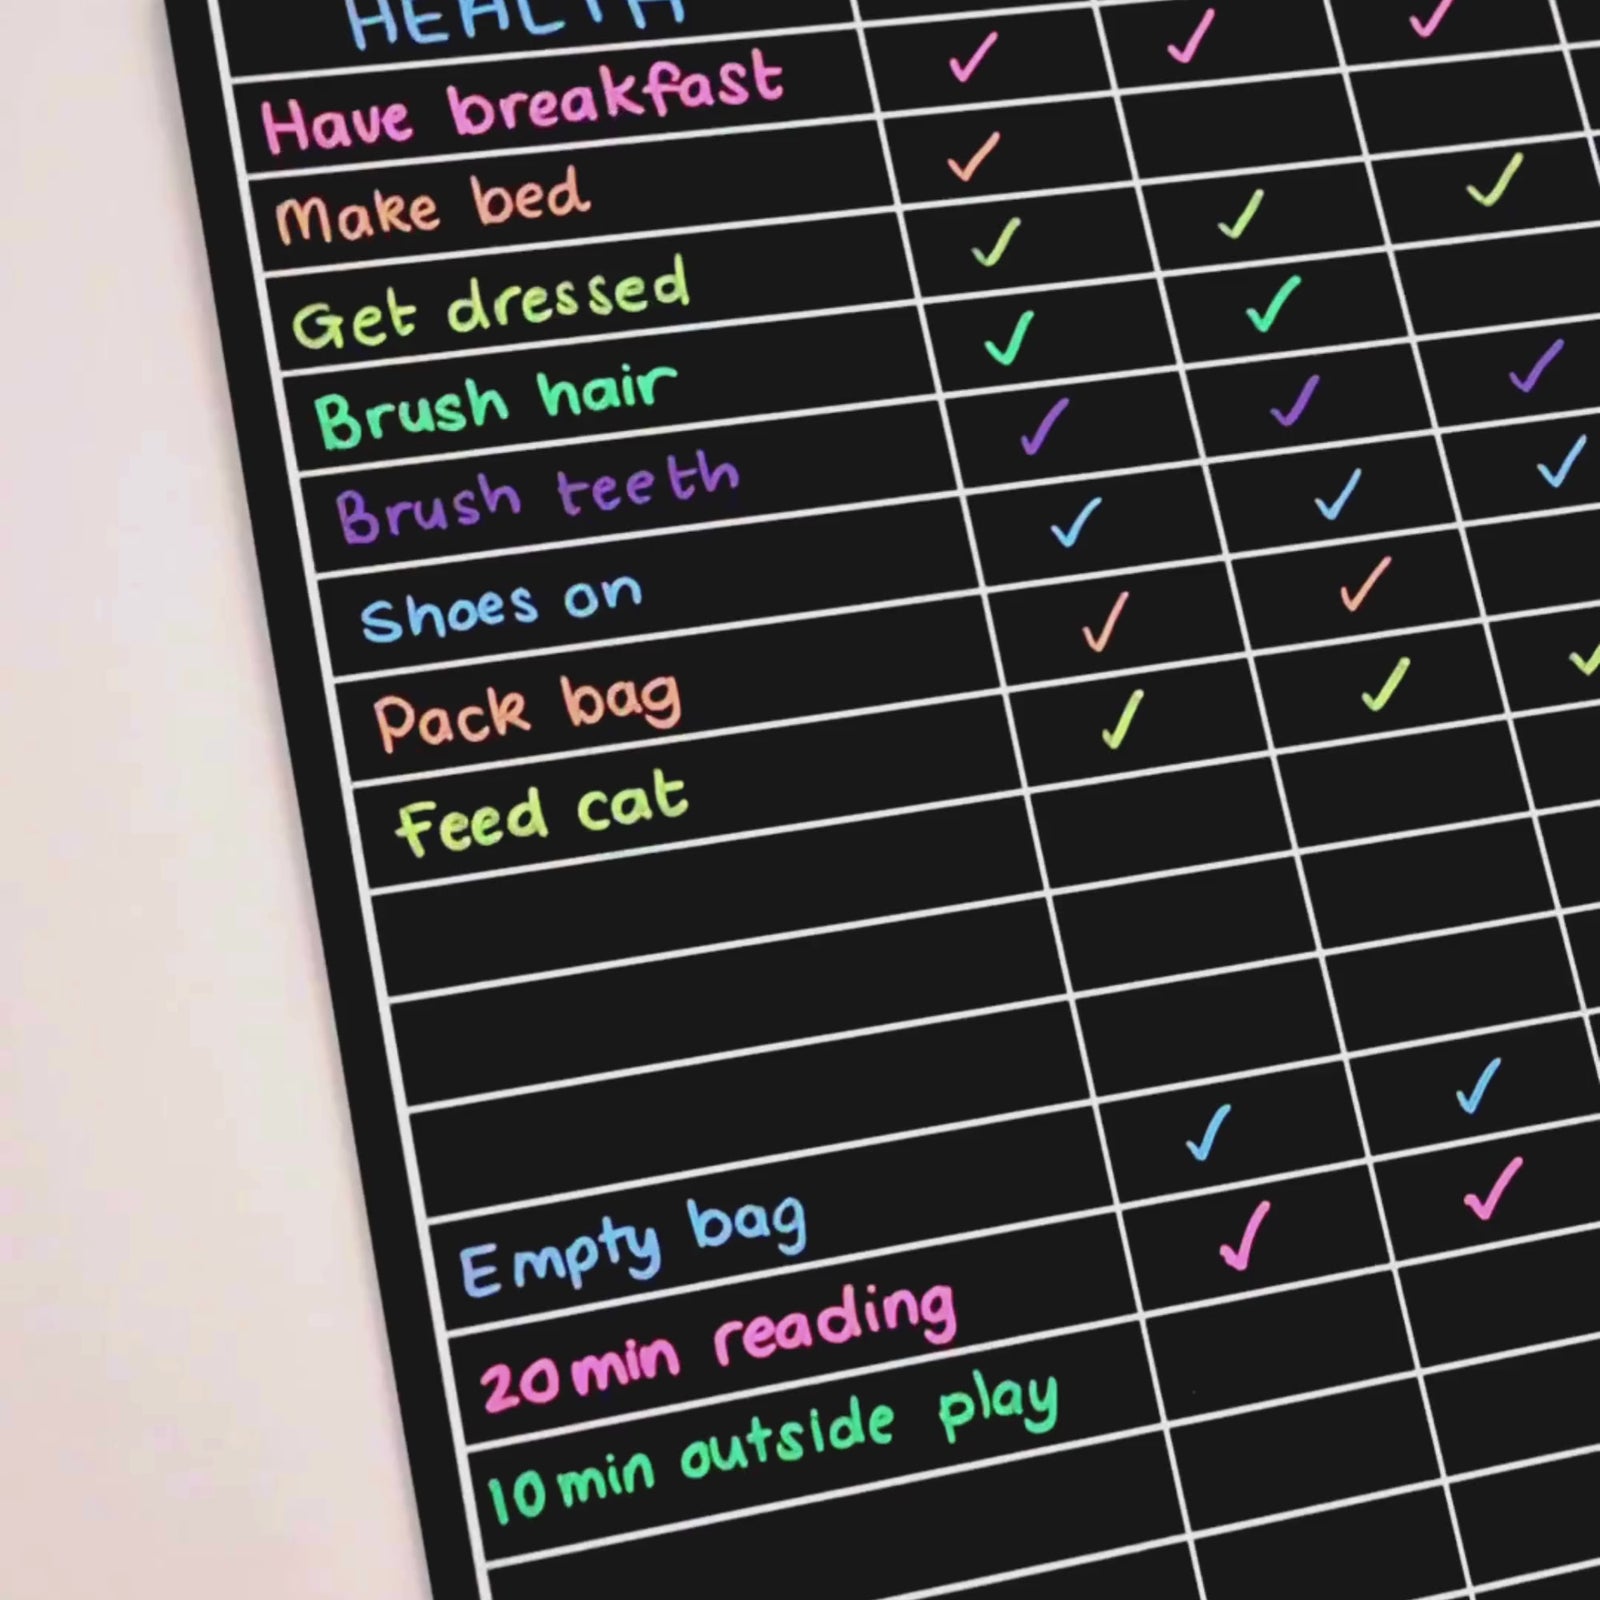 HEALTH
Have breakfast ✓ ✓ ✓
Make bed ✓
Get dressed ✓ ✓ ✓
Brush hair ✓ ✓
Brush teeth ✓ ✓ ✓
Shoes on ✓ ✓ ✓
Pack bag ✓ ✓
Feed cat ✓ ✓ ✓
Empty bag ✓ ✓
20 min reading ✓ ✓
10 min outside play